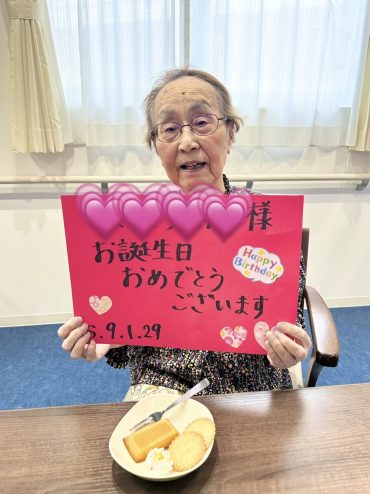 様
お誕生日
おめでとう
ございます
Happy
Birthday
S.9.1.29